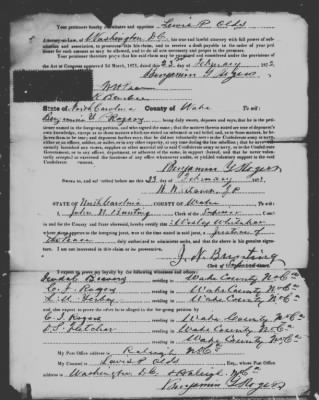 Your petitioner hereby constitutes and appoints Lewis P. Olds
Attorney-at-Law, of Washington D.C. his true and lawful attorney with full power of sub-
stitution and association, to prosecute this claim, and to receive a draft payable to the order of your peti-
tioner for such amount as may be allowed, and to do all acts necessary and proper in the premises.
Your petitioner therefore prays that his claim may be examined and considered under the provisions of
the Act of Congress approved 3d March, 1871, dated this 23rd of February 187
Benjamin Y Rogers
State of North Carolina County of Wake To wit:
Benjamin Y. Rogers being duly sworn, deposes and says, that he is the peti-
tioner named in the foregoing petition, and who signed the same; that the matters therein stated are true of deponent's
own knowledge, except as to those matters which are stated on information and belief, and as to those matters, he be-
lieves them to be true; and deponent further says, that he did not voluntarily serve in the Confederate army or navy,
either as an officer, soldier, or sailor, or in any other capacity, at any time during the late rebellion; that he never vol-
untarily furnished any stores, supplies or other material aid to said Confederate army or navy, or to the Confederate
Government, or to any officer, department, or adherent of the same, in support thereof, and that he never volun-
tarily accepted or exercised the functions of any office whatsoever under, or yielded voluntary support to the said
Confederate Government.
Benjamin Y Rogers
Sworn to, and subscribed before me this 23 of February 187
STATE of North Carolina COUNTY of Wake To wit:
I, John N. Bunting Clerk of the Superior Court
in and for the County and State aforesaid, hereby certify that Wesley Whitaker
whose name appears to the foregoing jurat, was at the time stated in said jurat, a Justice of
the Peace duly authorized to administer oaths, and that the above is his genuine signa-
ture. I am not interested in this claim or its prosecution.
J. N. Bunting
Clerk of
I expect to prove my loyalty by the following witnesses and others:
residing in Wake County N. Ca
C. J. Rogers residing in Wake County N. Ca
residing in Wake County N. Ca
and expect to prove the advances alleged in the foregoing petition by
C. J. Rogers residing in Wake County N. Ca
Fletcher residing in Wake County N. Ca
Wake County N. Ca
My Post Office address is Raleigh N. Ca.
My Counsel is Lewis P. Olds Esq., whose Post Office
address is Washington D.C. or Raleigh N. Ca
Benjamin Y Rogers